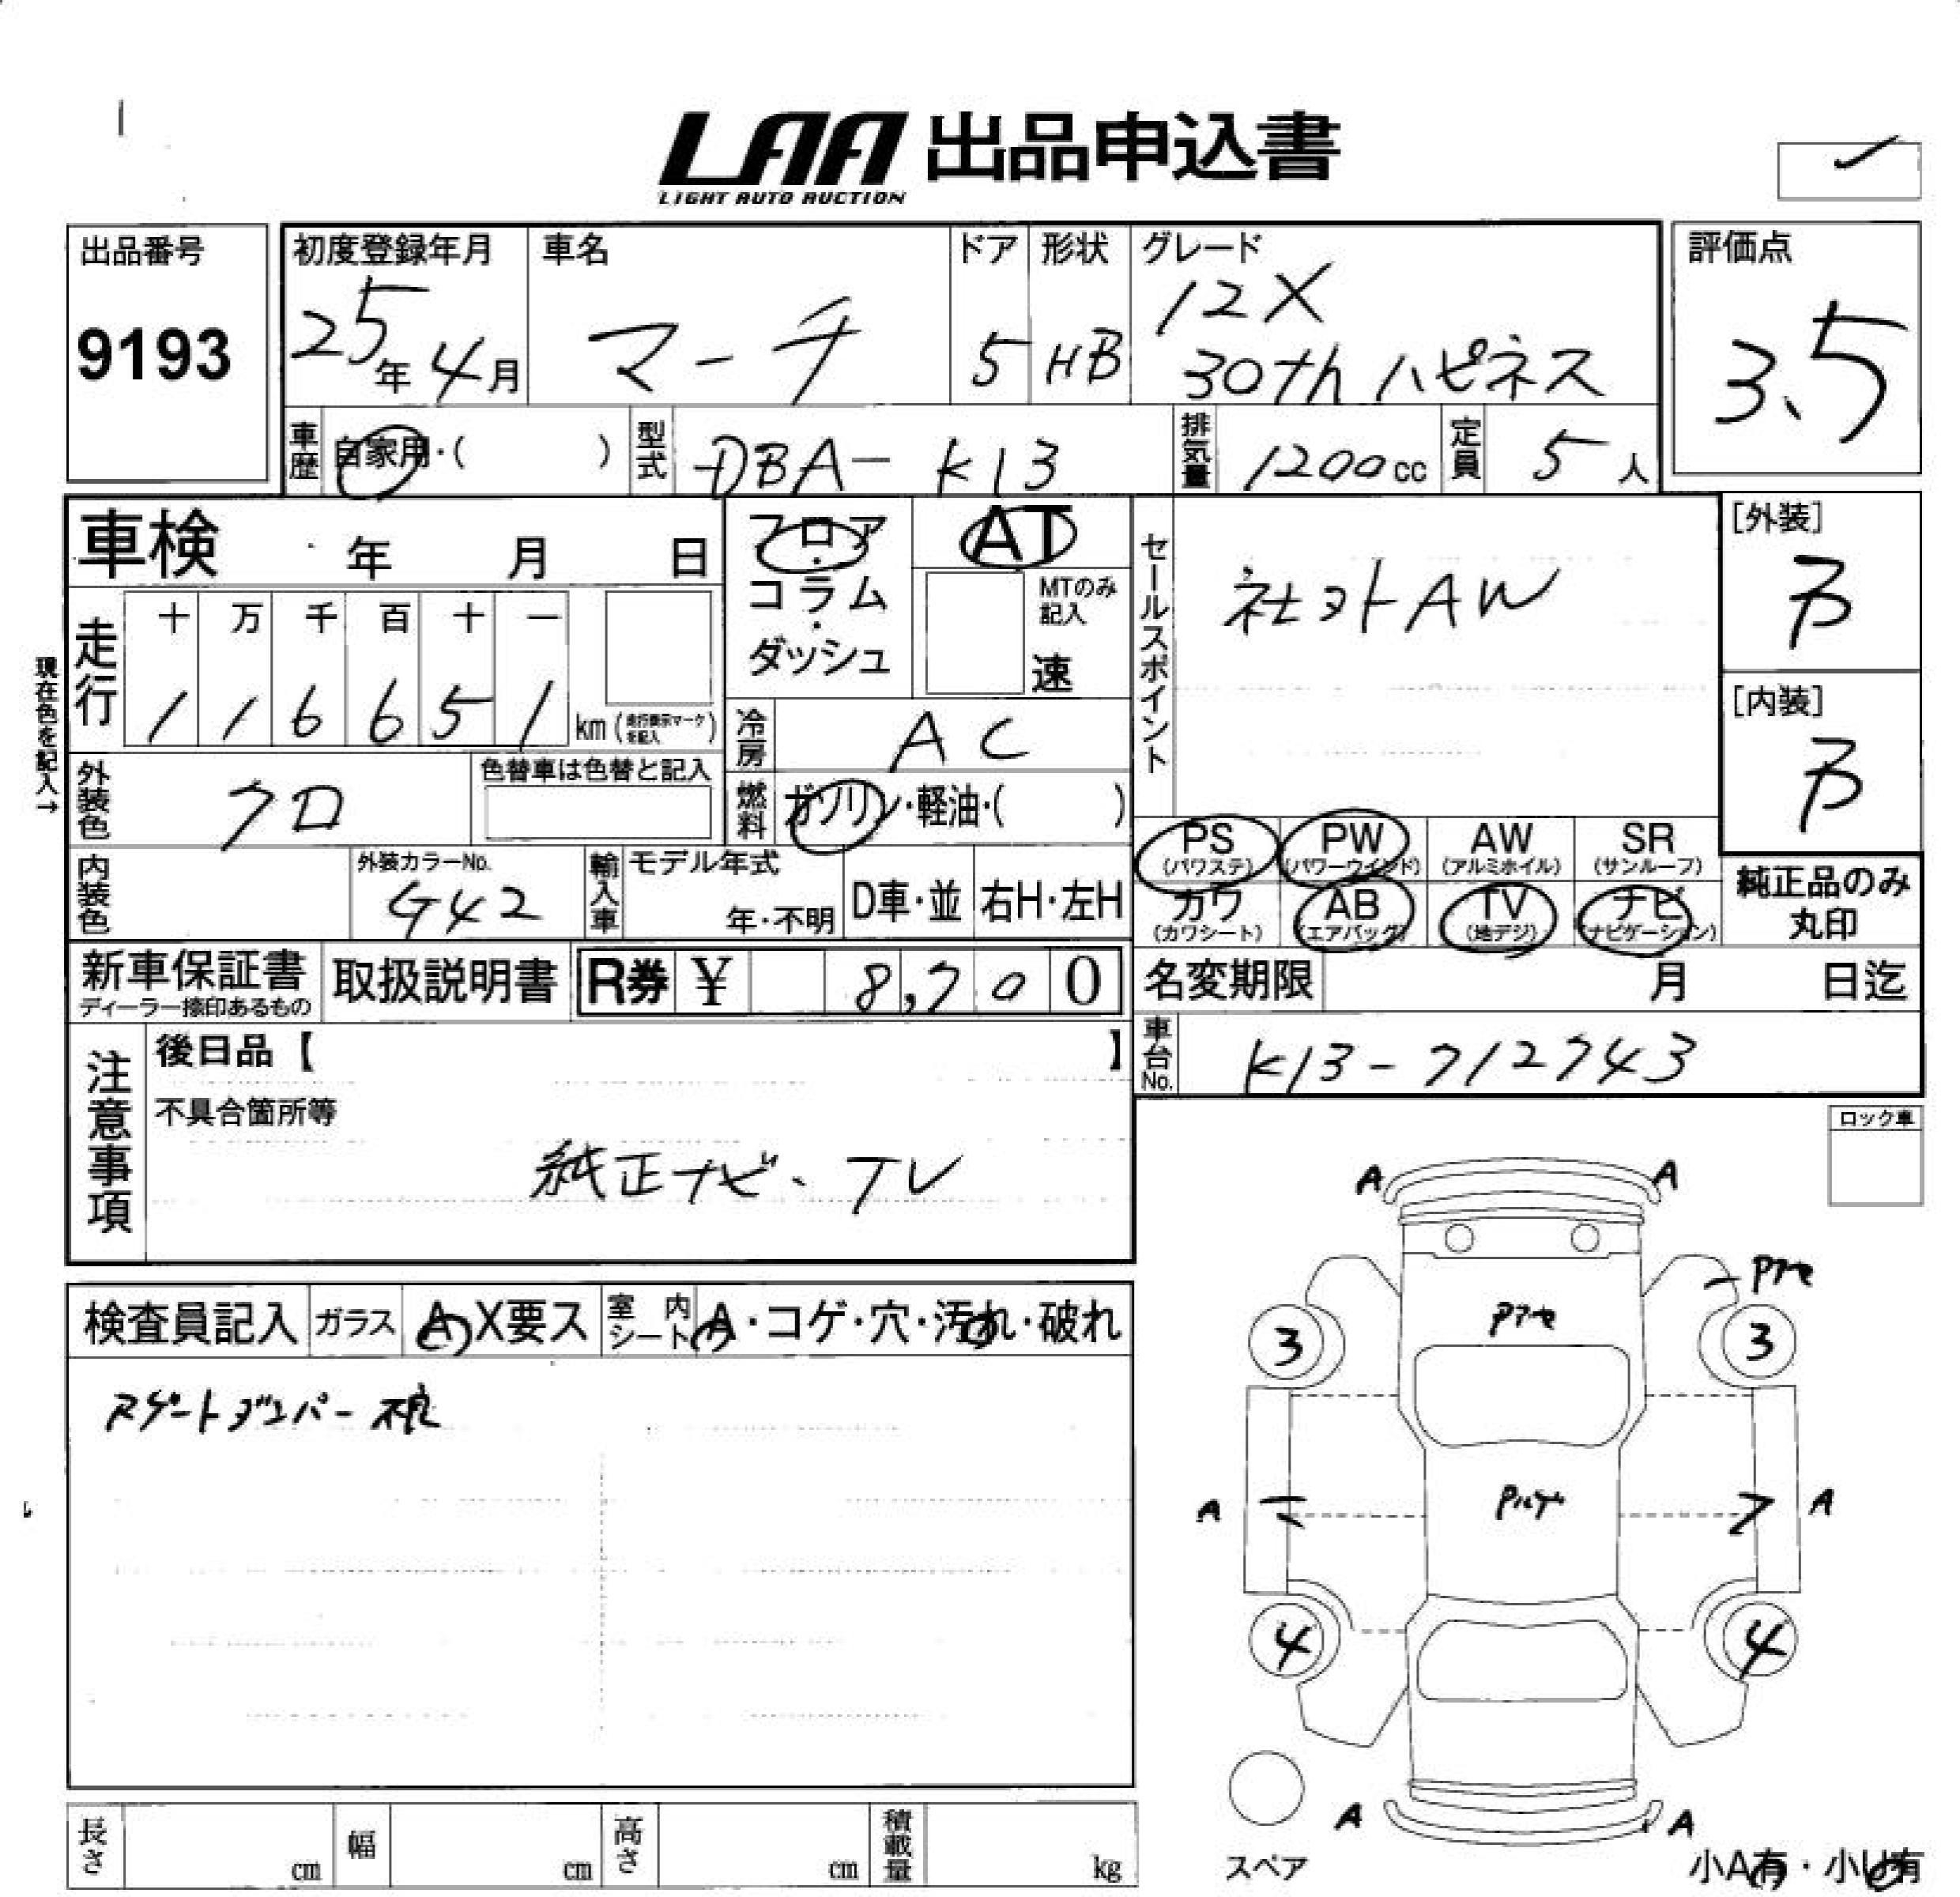 LAA 出品申込書
LIGHT AUTO AUCTION
出品番号
9193
初度登録年月
25年4月
車名
マーチ
ドア
5
形状
HB
グレード
12X
30th ハピネス
評価点
3.5
車歴
自家用・( )
型式
DBA-K13
排気量
1200cc
定員
5人
車検 年 月 日
フロア・コラム・ダッシュ
AT
MTのみ記入
速
セールスポイント
社外AW
[外装]
B
[内装]
B
現在色を記入→
走行
十 万 千 百 十 一
1 1 6 6 5 1
km(走行表示マークを記入)
冷房
AC
外装色
クロ
色替車は色替と記入
燃料
ガソリン・軽油・( )
PS (パワステ)
PW (パワーウインド)
AW (アルミホイル)
SR (サンルーフ)
内装色
外装カラーNo.
G42
輸入車
モデル年式
年・不明
D車・並
右H・左H
カワ (カワシート)
AB (エアバッグ)
TV (地デジ)
ナビ (ナビゲーション)
純正品のみ丸印
新車保証書
ディーラー捺印あるもの
取扱説明書
R券 ¥ 8,700
名変期限 月 日迄
車台No.
K13-712743
注意事項
後日品【 】
不具合箇所等
純正ナビ・TV
ロック車
検査員記入
ガラス
A X要ス
室内シート
A・コゲ・穴・汚れ・破れ
ダンパー不良
A A
3 3
A A
4 4
A A
スペア
小A有・小U有
長さ cm
幅 cm
高さ cm
積載量 kg